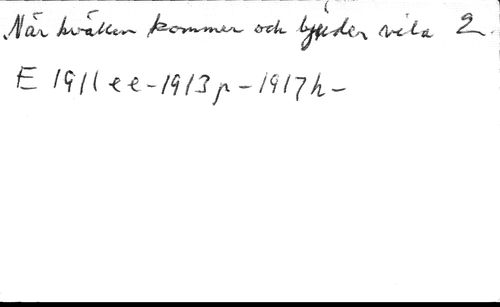 När kvällen kommer och bjuder vila 2.
E 1911 ee - 1913 p - 1917 h -